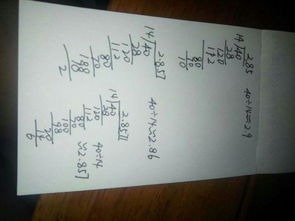 2.85
14/40
28
120
112
80
70
40÷14≈2.9
2.857
14/40
28
120
112
80
70
2
40÷14≈2.86
2.8571
14/40
28
120
112
80
70
100
98
20
14
6
40÷14
≈2.857